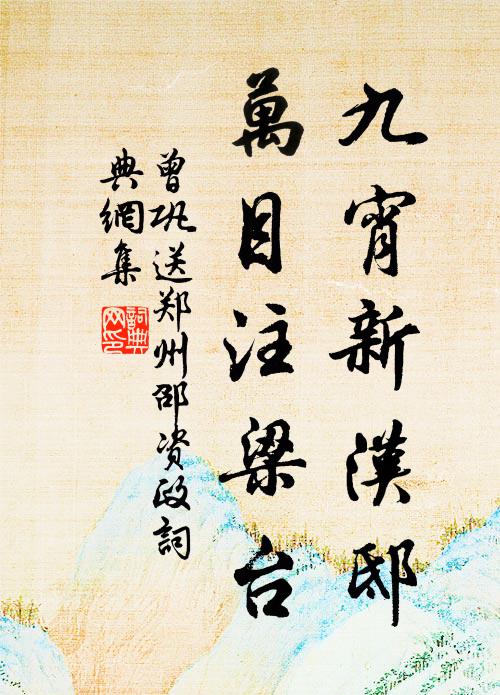 九宵新漢邸
萬目注梁台
曾巩送郑州邵资政詞
典網集
詞典網印